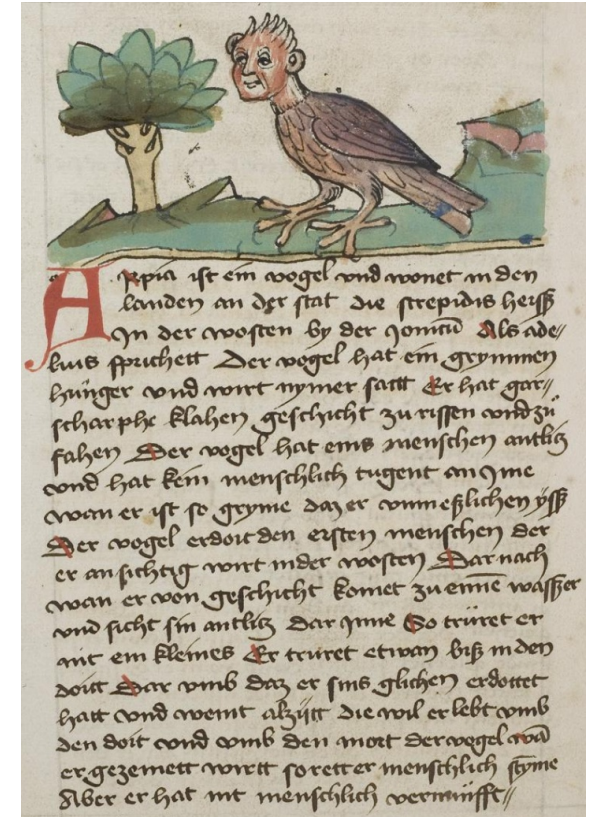 Arpia ist ein vogel vnd wonet in den
landen an der stat die strepidis heist
In der wosten by der Jonicũ Als ade//
linus sprichett Der vogel hat ein grymmen
hunger vnd wirt nymer satt Er hat gar//
scharphe klahen geschicht zu rissen vnd zu
fahen Der vogel hat eins menschen antlitz
vnd hat kein menschlich tugent an Jme
wan er ist so gryme daz er vnmeßlichen ysß
Der vogel erdoit den ersten menschen der
er ansichtig wirt in der wosten Dar nach
wan er von geschicht komet zu einē wasser
vnd sicht sin antlitz dar Jnne So truret er
nit ein kleines Er truret etwan biß in den
doitt Dar vmb daz er sins glichen erdottet
hatt vnd weint alzijtt die wil er lebt vmb
den doit vnd vmb den mort der vogel wā
er gezemett wirtt so rett er menschlich styme
Aber er hat nit menschlich vernūfft//